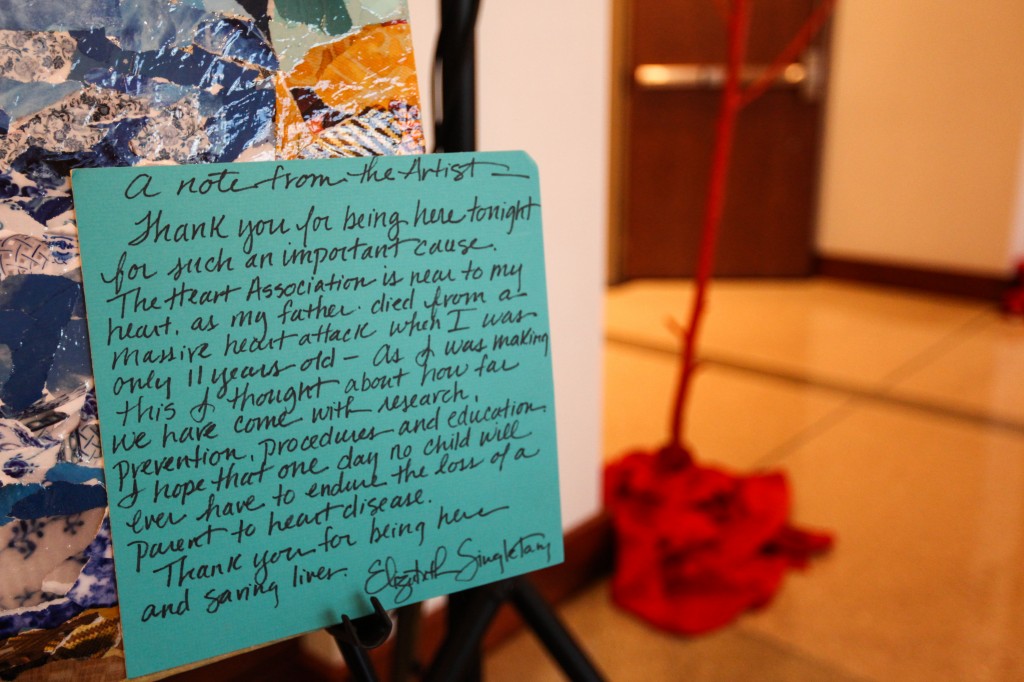 A note from the Artist —
Thank you for being here tonight
for such an important cause.
The Heart Association is near to my
heart, as my father died from a
massive heart attack when I was
only 11 years old - As I was making
this I thought about how far
we have come with research,
prevention, procedures and education.
I hope that one day no child will
ever have to endure the loss of a
parent to heart disease.
Thank you for being here
and saving lives. Elizabeth Singletary